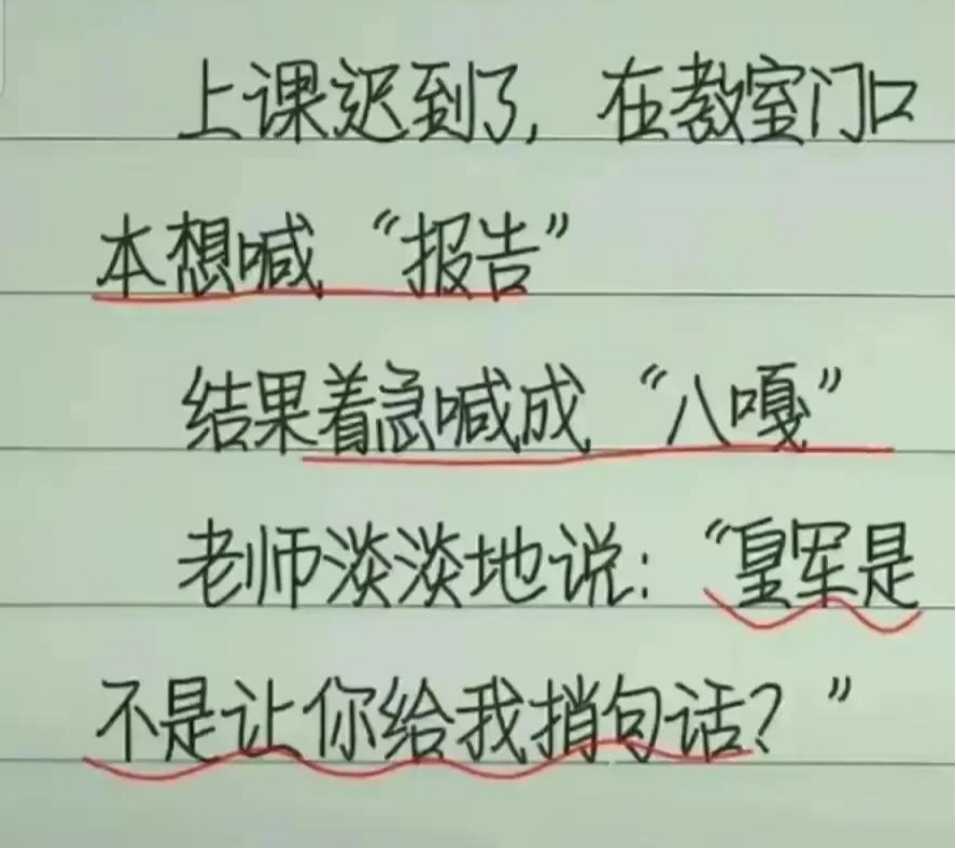 上课迟到了，在教室门口
本想喊“报告”
结果着急喊成“八嘎”
老师淡淡地说：“皇军是
不是让你给我捎句话？”